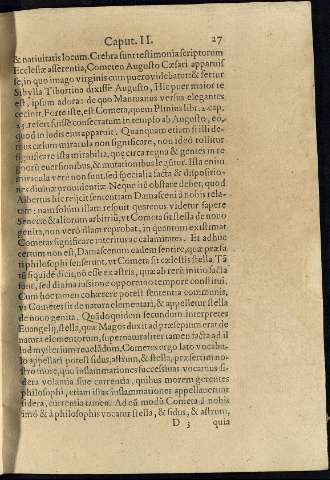 Caput. II. 27
& natiuitatis locum. Crebra sunt testimonia scriptorum
Ecclesiæ asserentia, Cometen Augusto Cæsari apparuis
se, in quo imago virginis cum puero videbatur: & fertur
Sibylla Tiburtina dixisse Augusto, Hic puer maior te
est, ipsum adora: de quo Mantuanus versus elegantes
cecinit. Forte iste, est Cometa, quem Plinius lib. 2. cap.
25. refert fuisse consecratum in templo ab Augusto, eo,
quod in ludis eius apparuit. Quanquam etiam si illi de-
mus cælum miracula non significare, non ideo tollitur
significare ista mirabilia, quæ circa regna & gentes in re
gnorũ euersionibus, & mutationibus leguntur. Ista enim
miracula vere non sunt, sed specialia facta & dispositio-
nes diuinæ prouidentiæ. Neque id obstare debet, quod
Albertus hic rejicit sententiam Damasceni à nobis rela-
tam: nam solùm illam respuit quatenus videtur sapere
Senecæ & aliorum arbitriũ, vt Cometa sit stella de nouo
genita, non verò illam reprobat, in quantum existimat
Cometas significare interitus ac calamitates. Et adhuc
certum non est, Damascenum eadem sentire, quæ præfa
ti philosophi senserunt, vt Cometa sit cælestis stella. Tã
tũ siquidè dicit, nõ esse ex astris, quæ ab rerũ initio facta
sunt, sed diuina iussione opportuno tempore constitui.
Cum hoc tamen cohærere potest sententia communis,
vt Cometes sit de natura elementari, & appelletur stella
de nouo genita. Quãdoquidem secundum interpretes
Euangelij, stella, quæ Magos duxit ad præsepium erat de
natura elementorum, supernaturaliter tamen facta ad il
lud mysterium reuelãdum. Cometes ergo lato vocabu-
lo appellari potest sidus, astrum, & stella, præsertim no-
stro more, quo inflammationes successiuas vocamus si-
dera volantia siue currentia, quibus morem gerentes
philosophi, etiam istas inflammationes appellauerunt
sidera, currentia tamen. Ad eũ modũ Cometa à nobis
simo & à philosophis vocatur stella, & sidus, & astrum,
D 3 quia